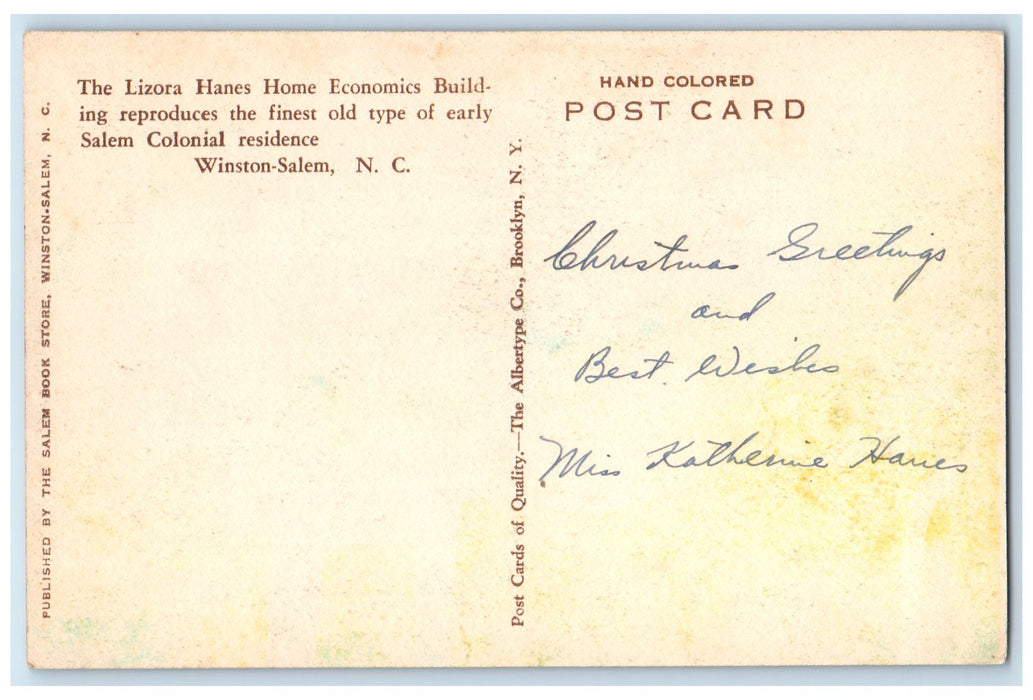 The Lizora Hanes Home Economics Build-
ing reproduces the finest old type of early
Salem Colonial residence
Winston-Salem, N. C.
PUBLISHED BY THE SALEM BOOK STORE, WINSTON-SALEM, N. C.
Post Cards of Quality.—The Albertype Co., Brooklyn, N. Y.
HAND COLORED
POST CARD
Christmas Greetings
and
Best Wishes
Miss Katherine Hanes